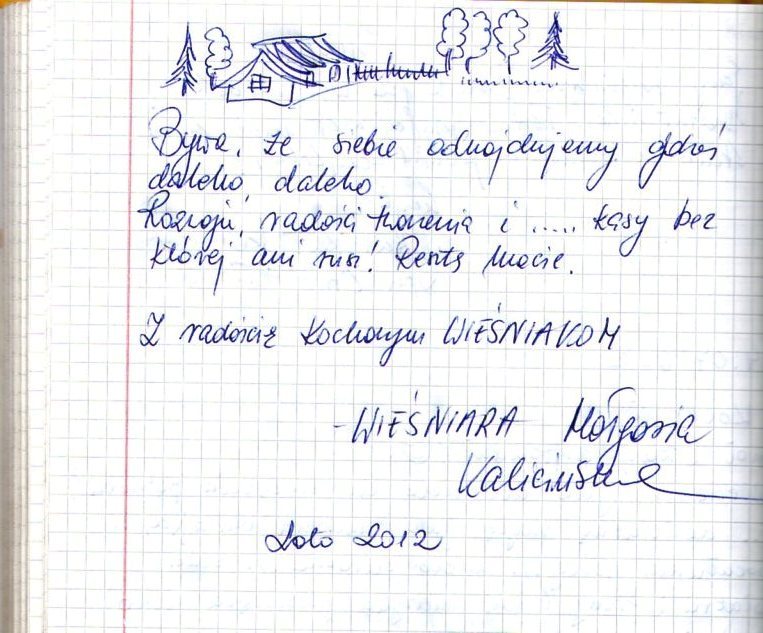 Bywa, że siebie odnajdujemy gdzieś
daleko, daleko.
Rozwoju, radości tworzenia i ..... kasy bez
której ani rusz! Resztę macie.
Z radością Kochanym WIEŚNIAKOM
- WIEŚNIARA Małgosia
Kalicińska
Lato 2012